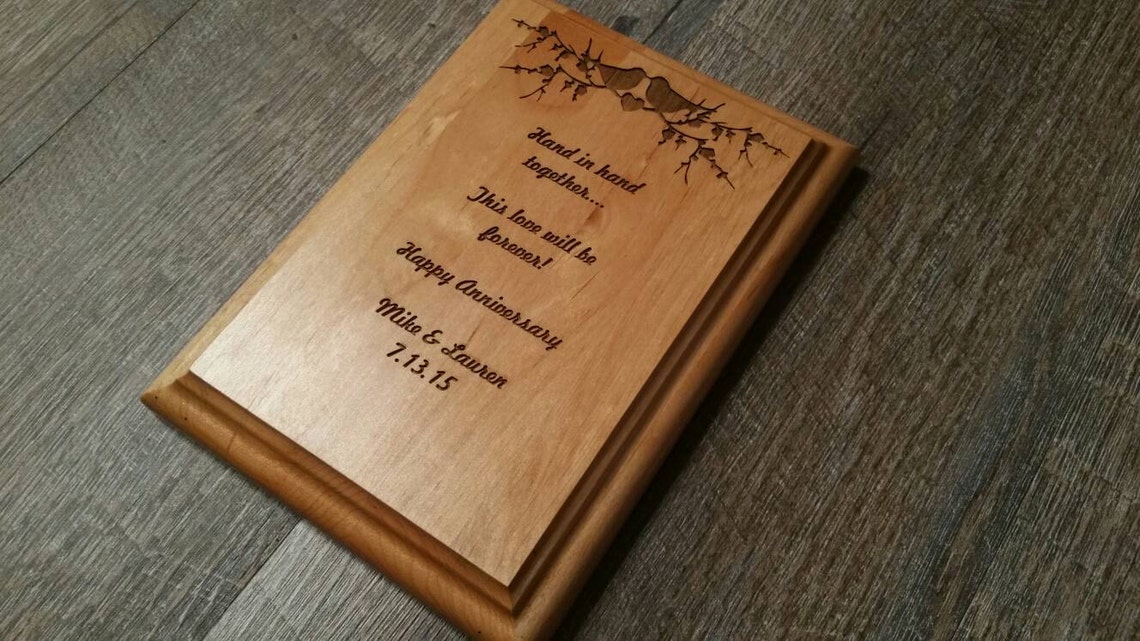 Hand in hand
together....
This love will be
forever!
Happy Anniversary
Mike & Lauren
7.13.15